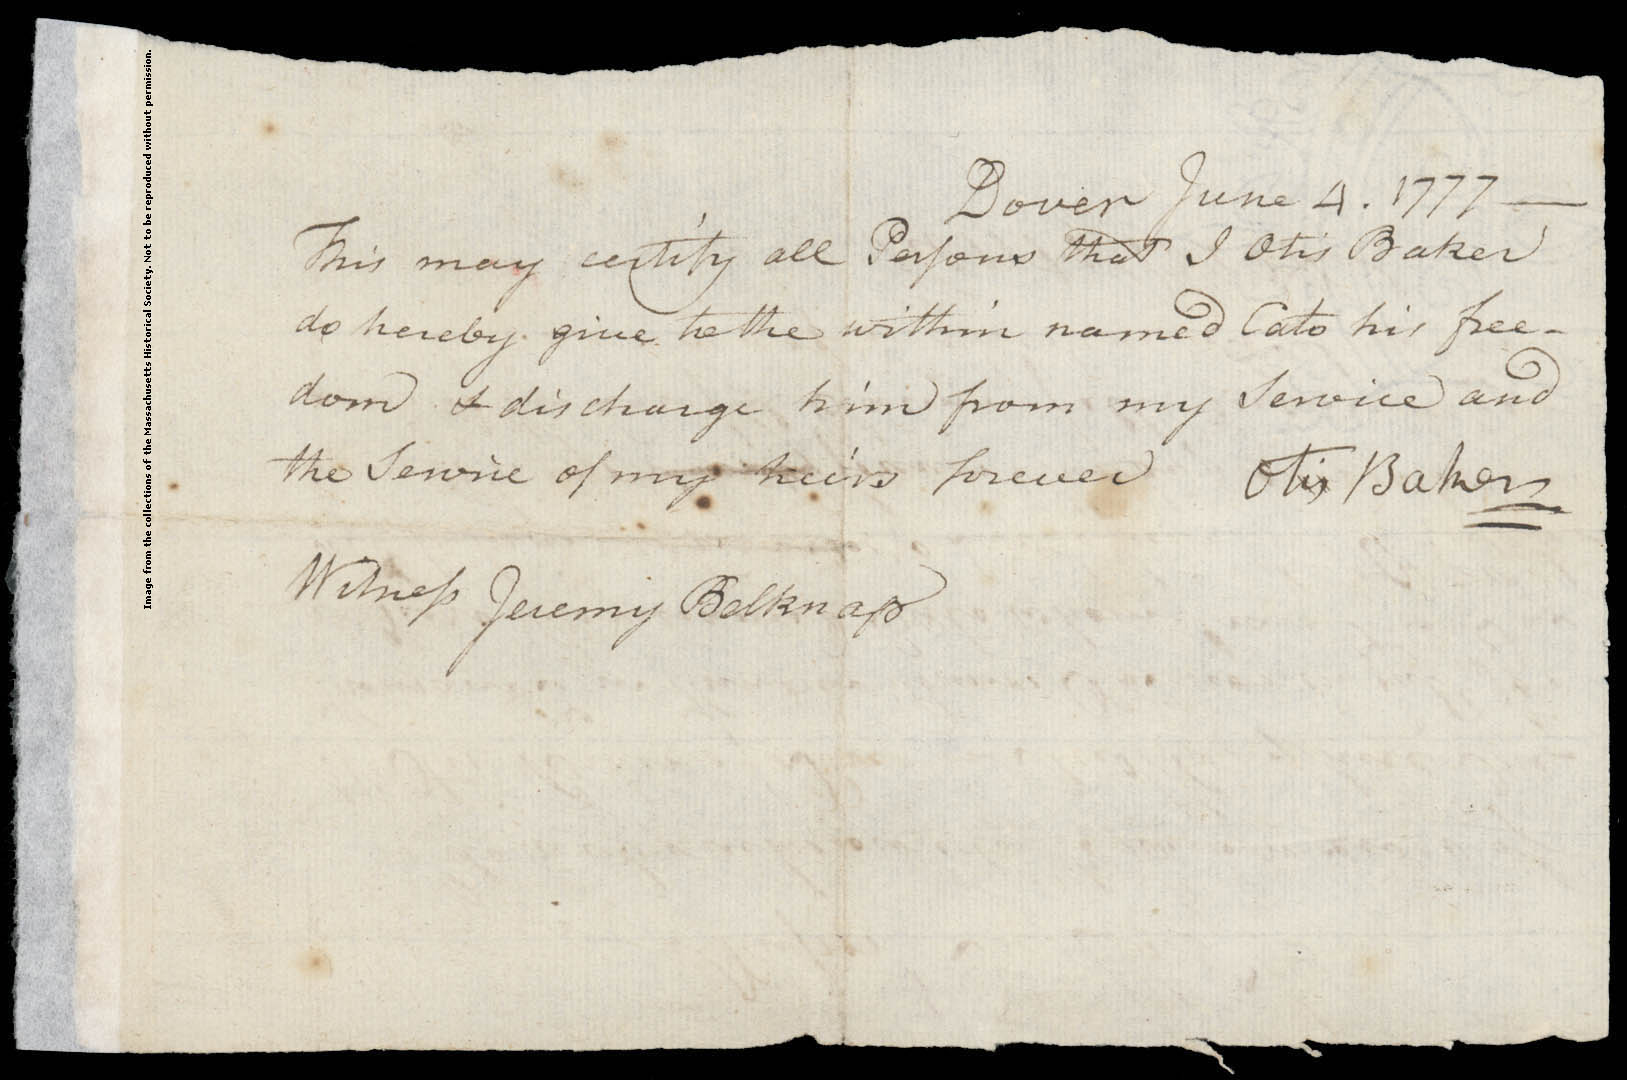 Dover June 4. 1777 —
This may certify all Persons that I Otis Baker
do hereby give to the within named Cato his free-
dom & discharge him from my Service and
the Service of my heirs forever Otis Baker
Witness Jeremy Belknap
Image from the collections of the Massachusetts Historical Society. Not to be reproduced without permission.